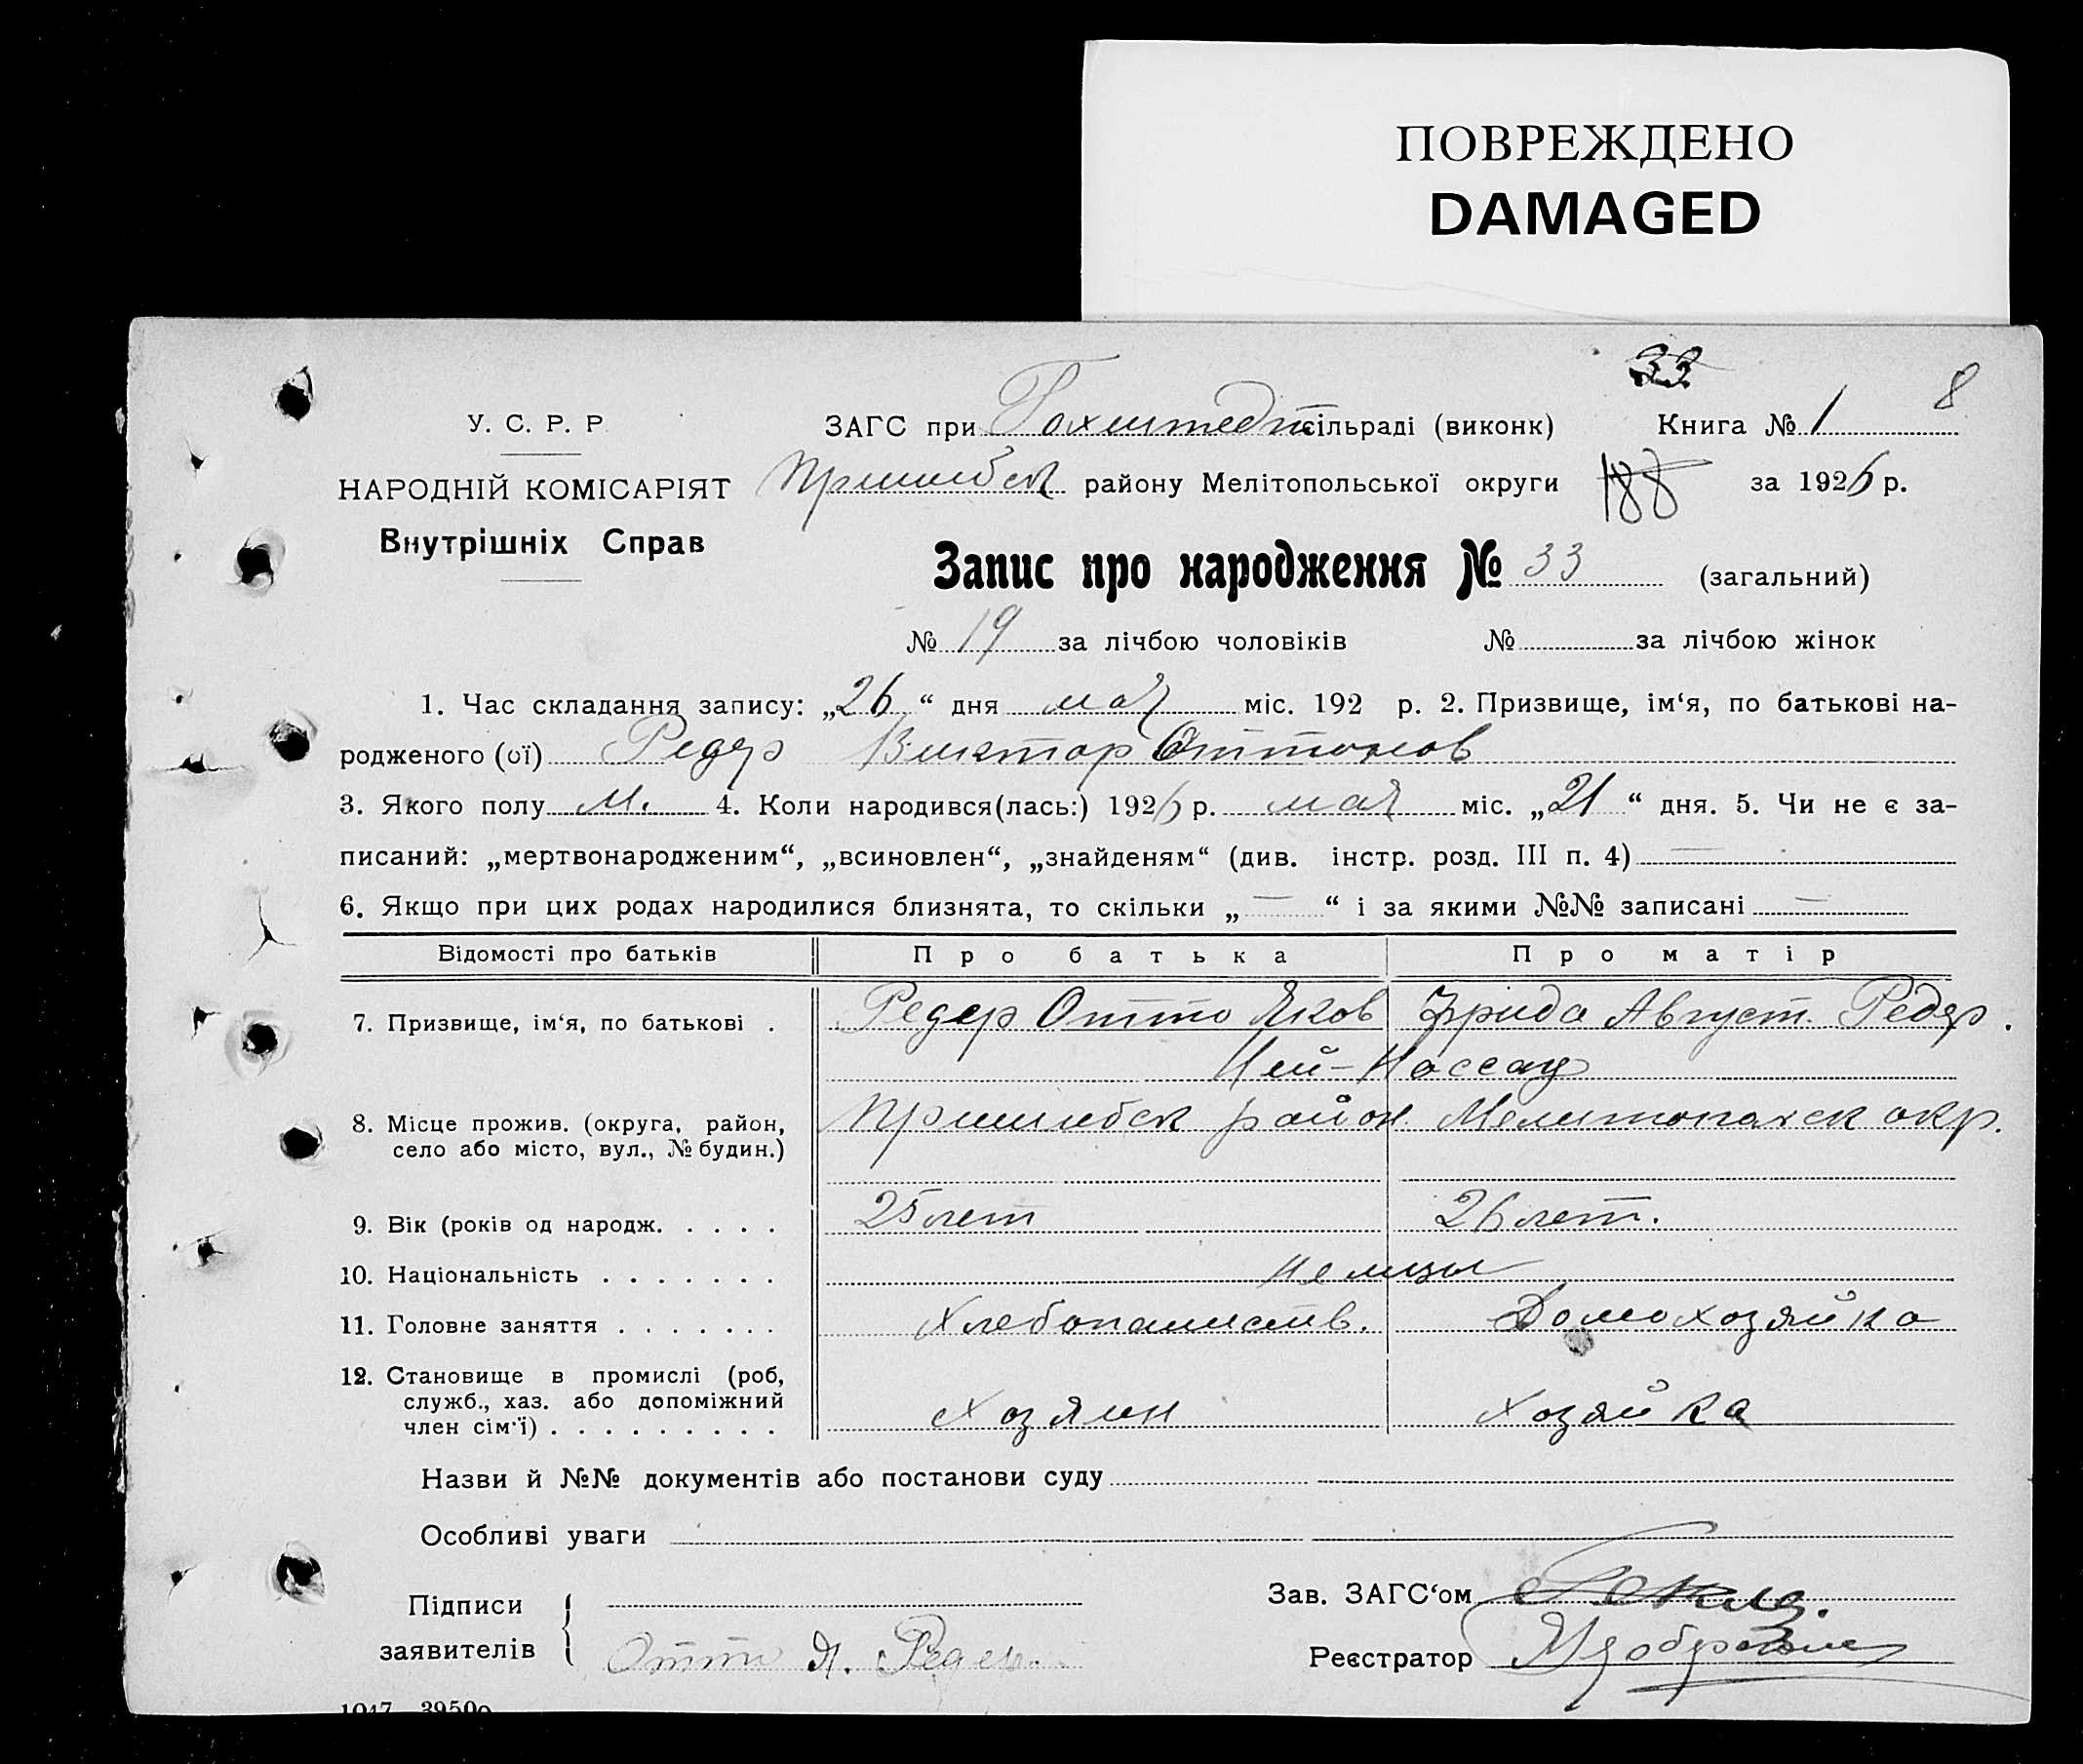 ПОВРЕЖДЕНО
DAMAGED
33
8
У. С. Р. Р
ЗАГС при Гохштедт сільраді (виконк) Книга № 1
НАРОДНІЙ КОМІСАРІЯТ
Пришибск району Мелітопольської округи 188 за 1926 р.
Внутрішніх Справ
Запис про народження № 33 (загальний)
№ 19 за лічбою чоловіків № за лічбою жінок
1. Час складання запису: „26“ дня мая міс. 192 р. 2. Призвище, ім‘я, по батькові на-
родженого (ої) Редер Виктор Оттонов
3. Якого полу М. 4. Коли народився(лась:) 1926 р. мая міс. „21“ дня. 5. Чи не є за-
писаний: „мертвонародженим“, „всиновлен“, „знайденям“ (див. інстр. розд. III п. 4) —
6. Якщо при цих родах народилися близнята, то скільки „—“ і за якими №№ записані —
Відомості про батьків Про батька Про матір
7. Призвище, ім‘я, по батькові . Редер Отто Яков Фрида Август. Редер.
Ней-Нассау
8. Місце прожив. (округа, район, Пришибск район. Мелитопольск окр.
село або місто, вул., № будин.)
9. Вік (років од народж. . . . . 25 лет 26 лет.
10. Національність . . . . . . . немцы
11. Головне заняття . . . . . . . Хлебопашеств. Домохозяйка
12. Становище в промислі (роб,
служб., хаз. або допоміжний
член сім‘ї) . . . . . . . . . Хозяин Хозяйка
Назви й №№ документів або постанови суду
Особливі уваги
Підписи
заявителів Отто Я. Редер.
Зав. ЗАГС‘ом
Реєстратор
1047 39500